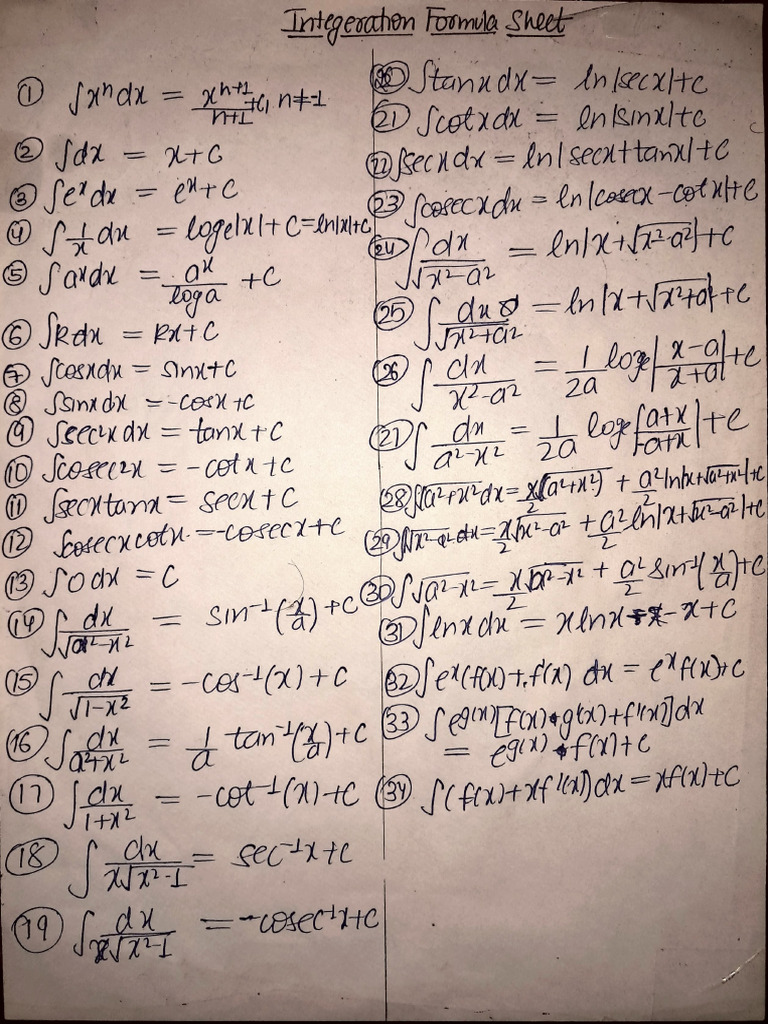 Integeration Formula Sheet
① ∫xⁿdx = xⁿ⁺¹/n+1 +c, n≠-1
② ∫dx = x+c
③ ∫eˣdx = eˣ+c
④ ∫1/x dx = logₑ|x|+c=ln|x|+c
⑤ ∫aˣdx = aˣ/log a +c
⑥ ∫kdx = kx+c
⑦ ∫cosxdx = sinx+c
⑧ ∫sinxdx = -cosx+c
⑨ ∫sec²xdx = tanx+c
⑩ ∫cosec²x = -cotx+c
⑪ ∫secxtanx = secx+c
⑫ ∫cosecxcotx = -cosecx+c
⑬ ∫0dx = c
⑭ ∫dx/√a²-x² = sin⁻¹(x/a)+c
⑮ ∫dx/√1-x² = -cos⁻¹(x)+c
⑯ ∫dx/a²+x² = 1/a tan⁻¹(x/a)+c
⑰ ∫dx/1+x² = -cot⁻¹(x)+c
⑱ ∫dx/x√x²-1 = sec⁻¹x+c
⑲ ∫dx/x√x²-1 = -cosec⁻¹x+c
⑳ ∫tanxdx = ln|secx|+c
㉑ ∫cotxdx = ln|sinx|+c
㉒ ∫secxdx = ln|secx+tanx|+c
㉓ ∫cosecxdx = ln|cosecx-cotx|+c
㉔ ∫dx/√x²-a² = ln|x+√x²-a²|+c
㉕ ∫dx/√x²+a² = ln|x+√x²+a|+c
㉖ ∫dx/x²-a² = 1/2a logₑ|x-a/x+a|+c
㉑ ∫dx/a²-x² = 1/2a logₑ|a+x/-a+x|+c
㉘ ∫√a²+x² dx = x/2√(a²+x²) + a²/2 ln|x+√a²+x²|+c
㉙ ∫√x²-a² dx = x/2√x²-a² + a²/2 ln|x+√x²-a²|+c
㉚ ∫√a²-x² = x/2√a²-x² + a²/2 sin⁻¹(x/a)+c
㉛ ∫lnxdx = xlnx - x+c
㉜ ∫eˣ(f(x)+f'(x) dx = eˣf(x)+c
㉝ ∫e^g(x)[f(x)·g'(x)+f'(x)]dx
= e^g(x)·f(x)+c
㉞ ∫(f(x)+xf'(x))dx = xf(x)+c